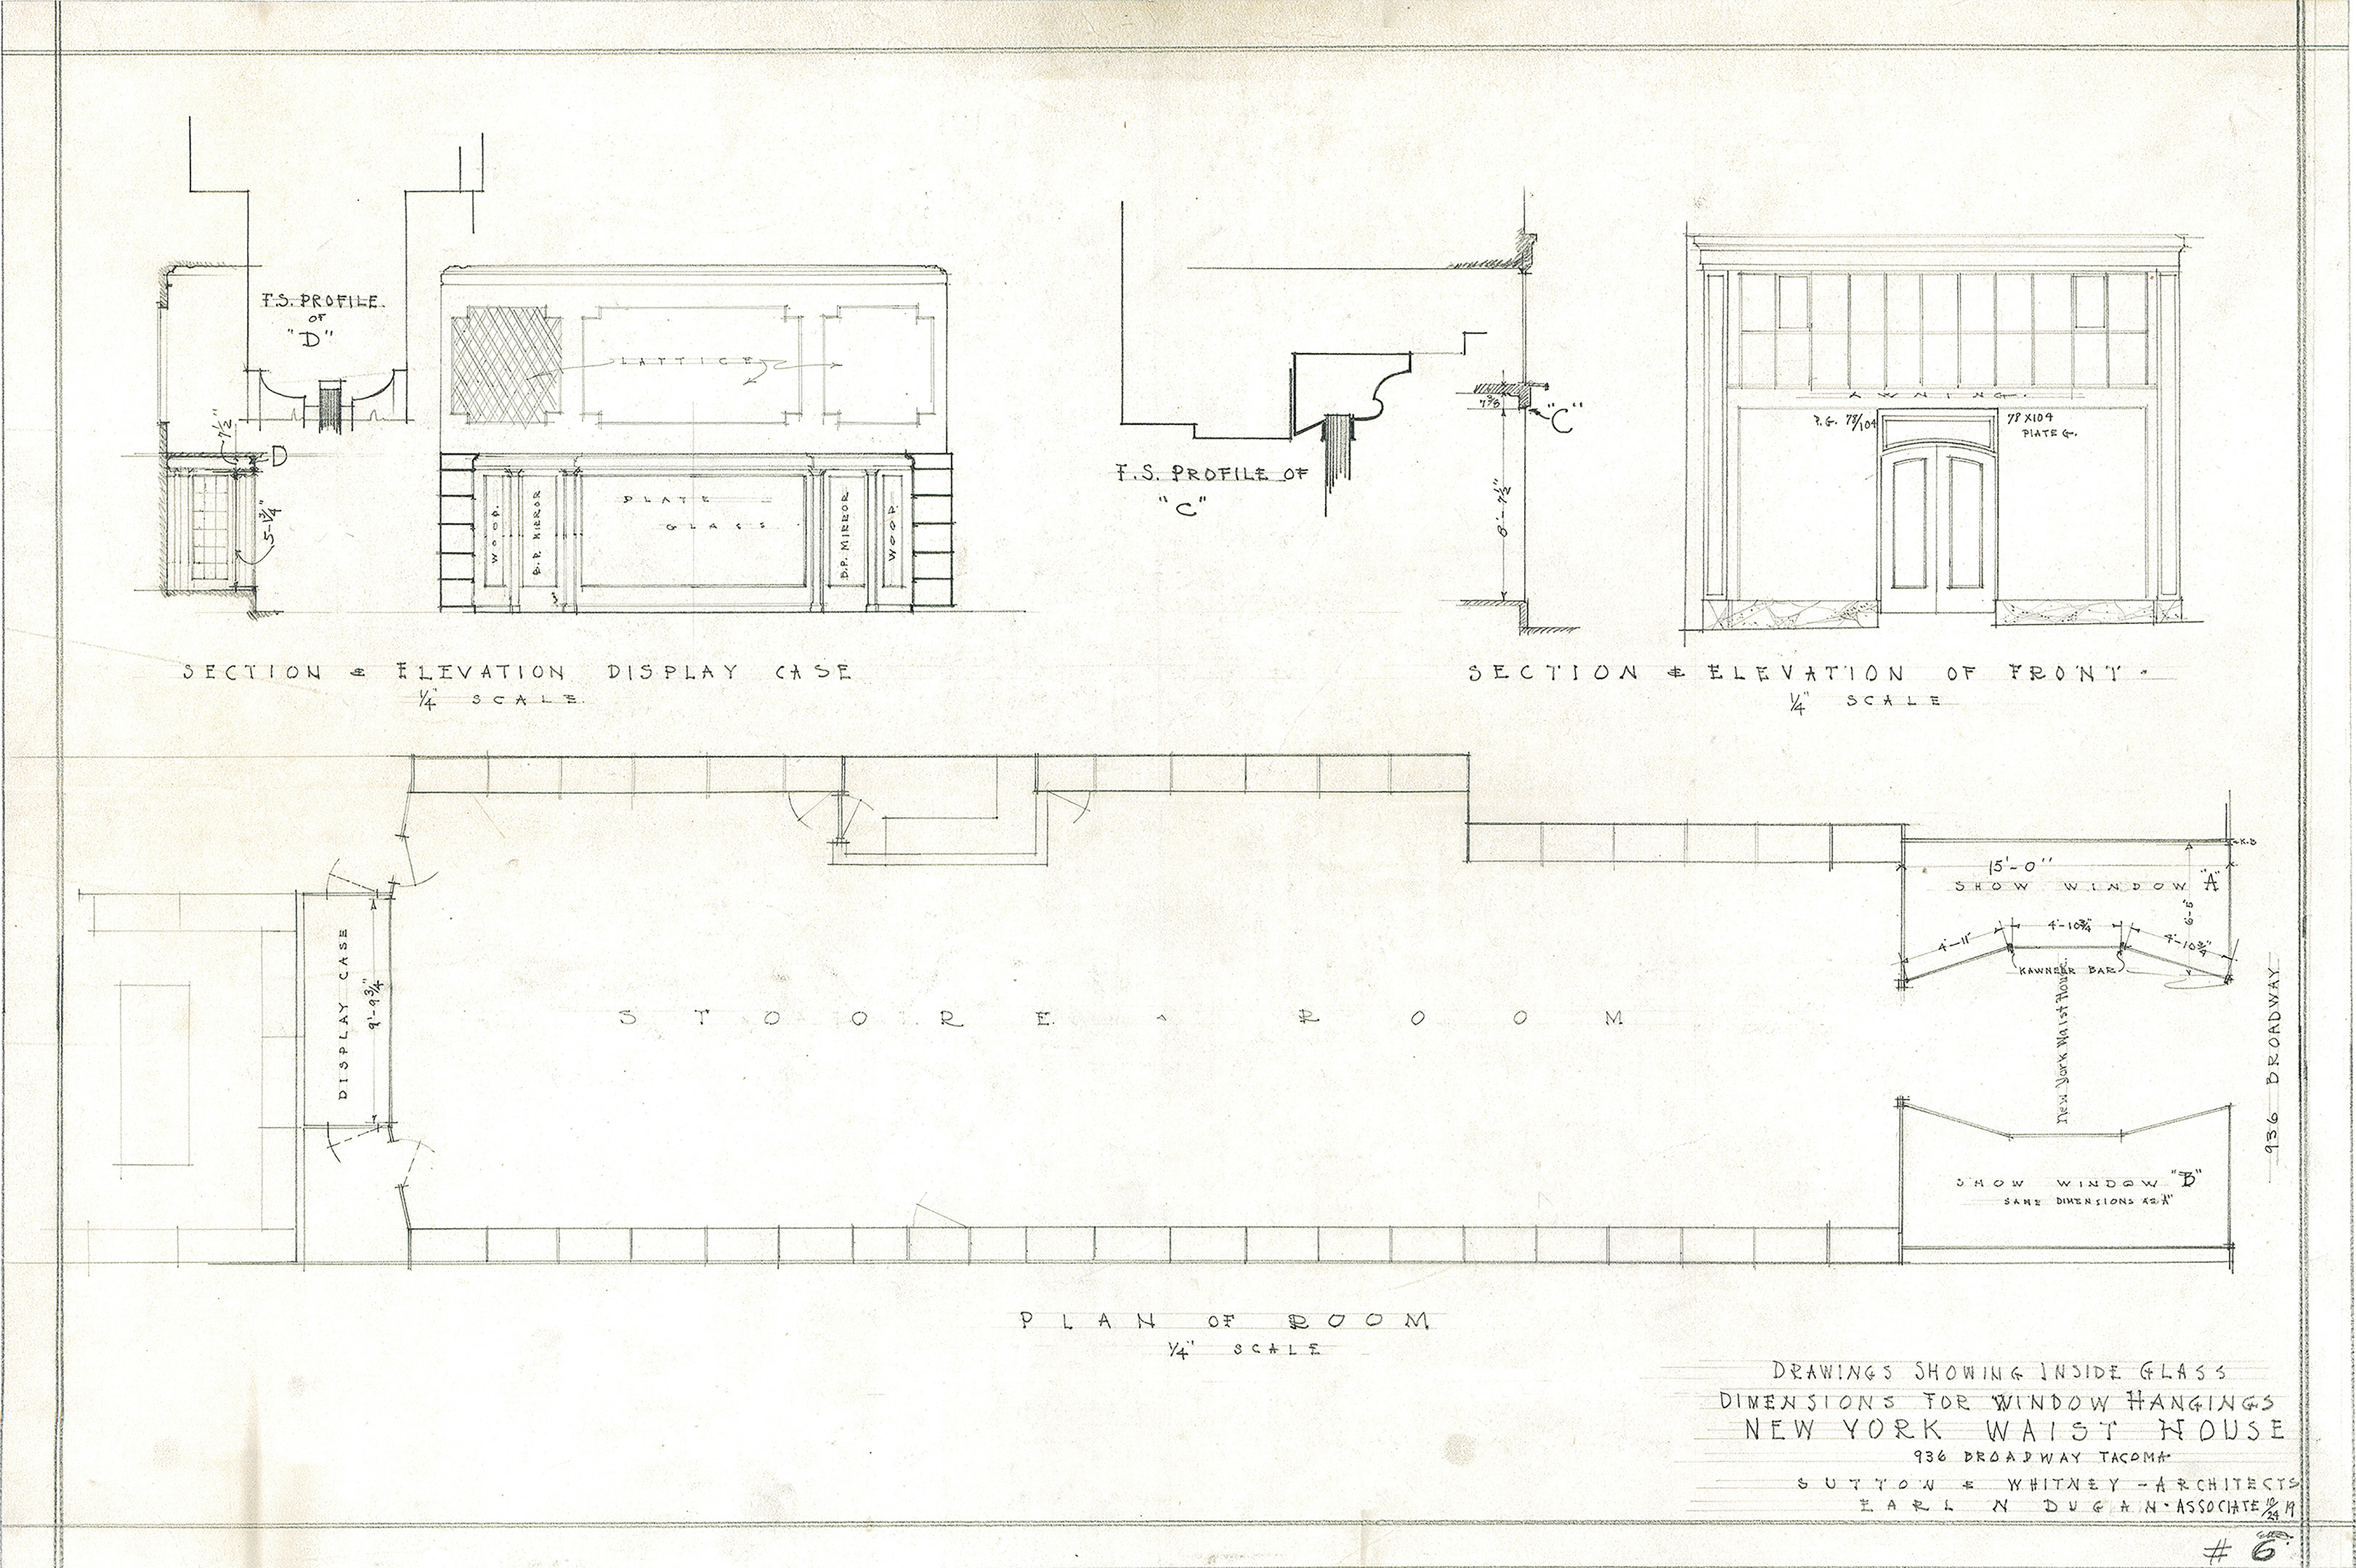 F.S. PROFILE
OF
"D"
7½"
D
5-1¾"
LATTICE
WOOD.
B.P. MIRROR
PLATE
GLASS
B.P. MIRROR
WOOD.
SECTION & ELEVATION DISPLAY CASE
¼" SCALE.
F.S. PROFILE OF
"C"
"C"
8'-7½"
AWNING.
P.G. 78/104
78 X104
PLATE G.
SECTION & ELEVATION OF FRONT.
¼" SCALE
DISPLAY CASE
9'-9¾"
STOORE - ROOM
15'-0"
SHOW WINDOW "A"
6-5"
4'-11"
4'-10¾"
4'-10¾"
KAWNEER BAR
New York Waist House.
936 BROADWAY
SHOW WINDOW "B"
SAME DIMENSIONS AS "A"
PLAN OF ROOM
¼" SCALE
DRAWINGS SHOWING INSIDE GLASS
DIMENSIONS FOR WINDOW HANGINGS
NEW YORK WAIST HOUSE
936 BROADWAY TACOMA
SUTTON & WHITNEY - ARCHITECTS
EARL N DUGAN - ASSOCIATE 10/24 19
# 6